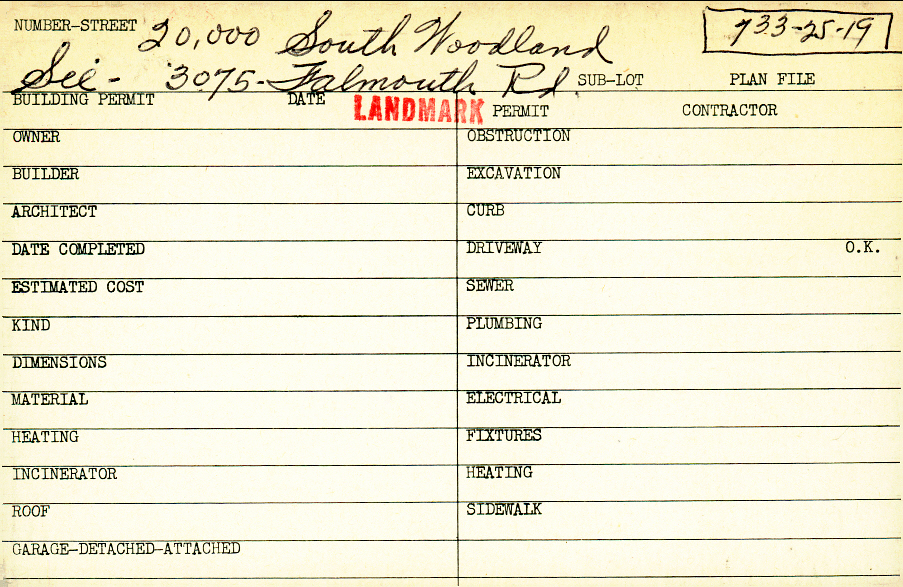 NUMBER-STREET 20,000 South Woodland 733-25-19
See- 3075- Falmouth Rd SUB-LOT PLAN FILE
BUILDING PERMIT DATE LANDMARK PERMIT CONTRACTOR
OWNER OBSTRUCTION
BUILDER EXCAVATION
ARCHITECT CURB
DATE COMPLETED DRIVEWAY O.K.
ESTIMATED COST SEWER
KIND PLUMBING
DIMENSIONS INCINERATOR
MATERIAL ELECTRICAL
HEATING FIXTURES
INCINERATOR HEATING
ROOF SIDEWALK
GARAGE-DETACHED-ATTACHED